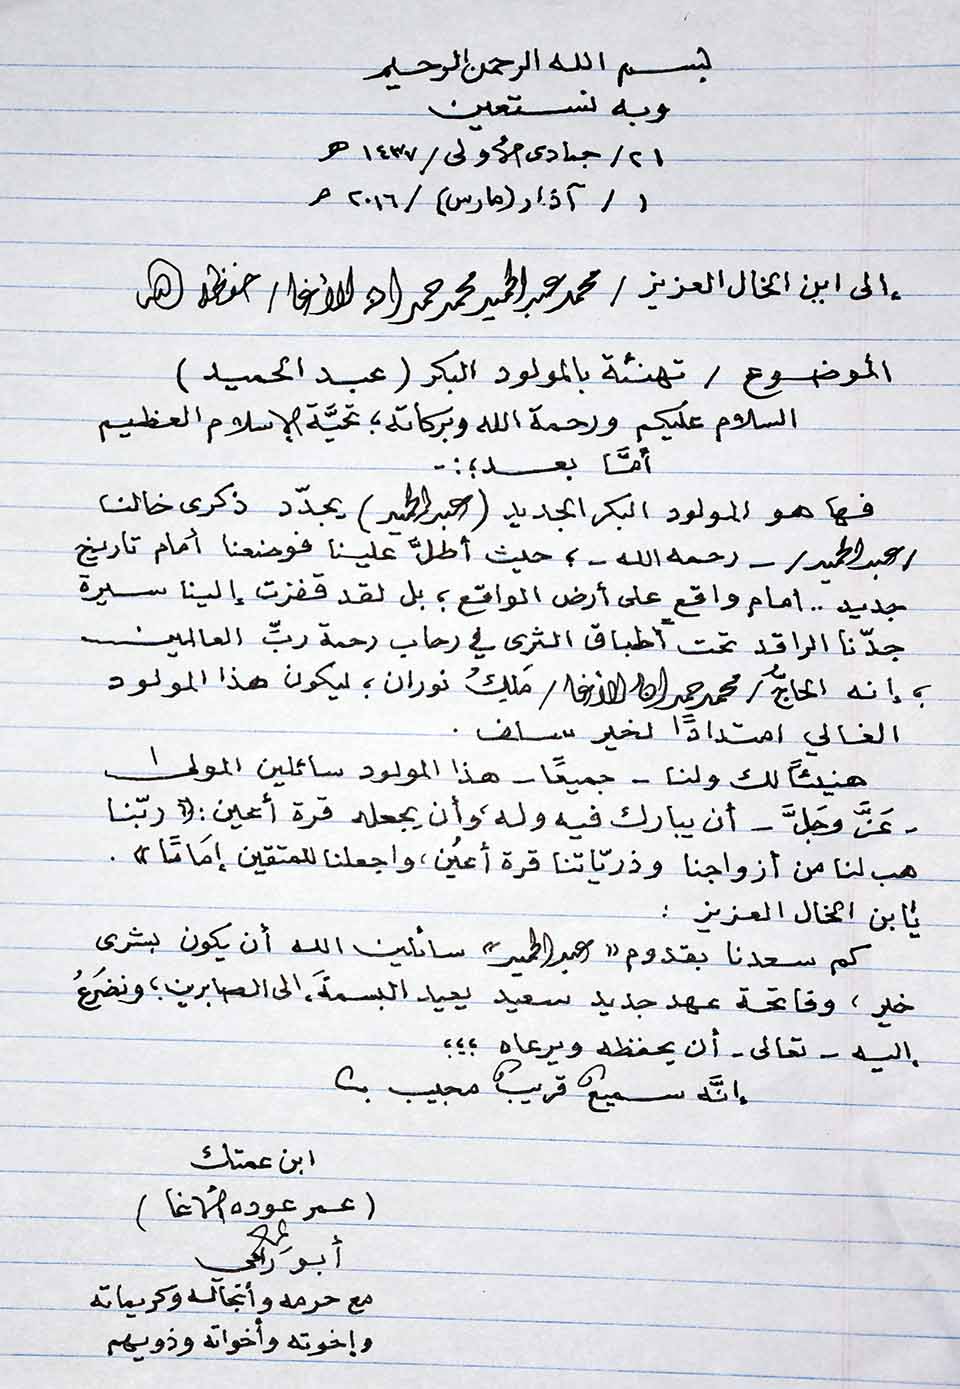 بسم الله الرحمن الرحيم
وبه نستعين
٢١/ جمادى الأولى/ ١٤٣٧ هـ
١ / آذار (مارس) / ٢٠١٦ م
إلى ابن الخال العزيز / محمد عبد الحميد محمد حمدان الأغا / حفظه الله
الموضوع / تهنئة بالمولود البكر (عبد الحميد)
السلام عليكم ورحمة الله وبركاته؛ تحيَّة الإسلام العظيم
أمَّا بعد؛:-
فها هو المولود البكر الجديد (عبد الحميد) يجدّد ذكرى خالنا
/عبد الحميد/ - رحمه الله - ؛ حيث أطلَّ علينا فوضعنا أمام تاريخ
جديد .. أمام واقع على أرض الواقع؛ بل لقد قفزت إلينا سيرة
جدّنا الراقد تحت أطباق الثرى في رحاب رحمة ربِّ العالمين
؛ إنه الحاجّ / محمد حمدان الأغا / مَلِكُ نوران ؛ ليكون هذا المولود
الغالي امتدادًا لخير سلف .
هنيئاً لك ولنا - جميعًا - هذا المولود سائلين المولى
- عَزَّ وجَلَّ - أن يبارك فيه وله، وأن يجعله قرة أعين: «ربّنا
هب لنا من أزواجنا وذريّاتنا قرة أعيُن، واجعلنا للمتقين إمَامًا» .
يا ابن الخال العزيز :
كم سعدنا بقدوم "عبد الحميد" سائلين الله أن يكون بشرى
خير ، وفاتحة عهد جديد سعيد يعيد البسمةَ إلى الصابرين؛ ونضرَعُ
إليه - تعالى - أن يحفظه ويرعاه ؛؛؛
إنَّه سميعٌ قريبٌ مجيب
ابن عمتك
(عمر عوده الأغا)
أبو رامي
مع حرمه وأنجاله وكريماته
وإخوته وأخواته وذويهم